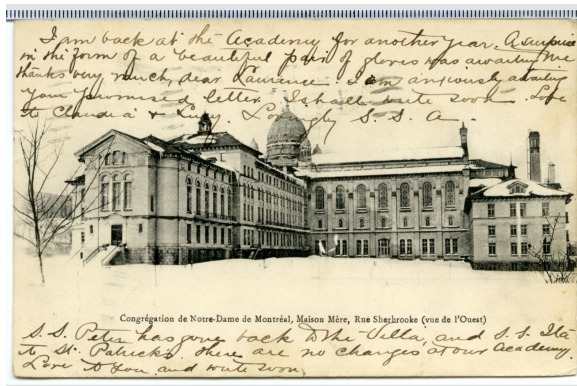 I am back at the Academy for another year. A surprise
in the form of a beautiful pair of gloves was awaiting me
thanks very much, dear Laurence. I am anxiously awaiting
your promised letter. I shall write soon. Love
to Claudia & Lucy. Lovingly S. S. A.
Congrégation de Notre-Dame de Montréal, Maison Mère, Rue Sherbrooke (vue de l'Ouest)
S. S. Peter has gone back to the Villa, and S. S. Ita
to St. Patricks. There are no changes at our Academy.
Love to you and write soon